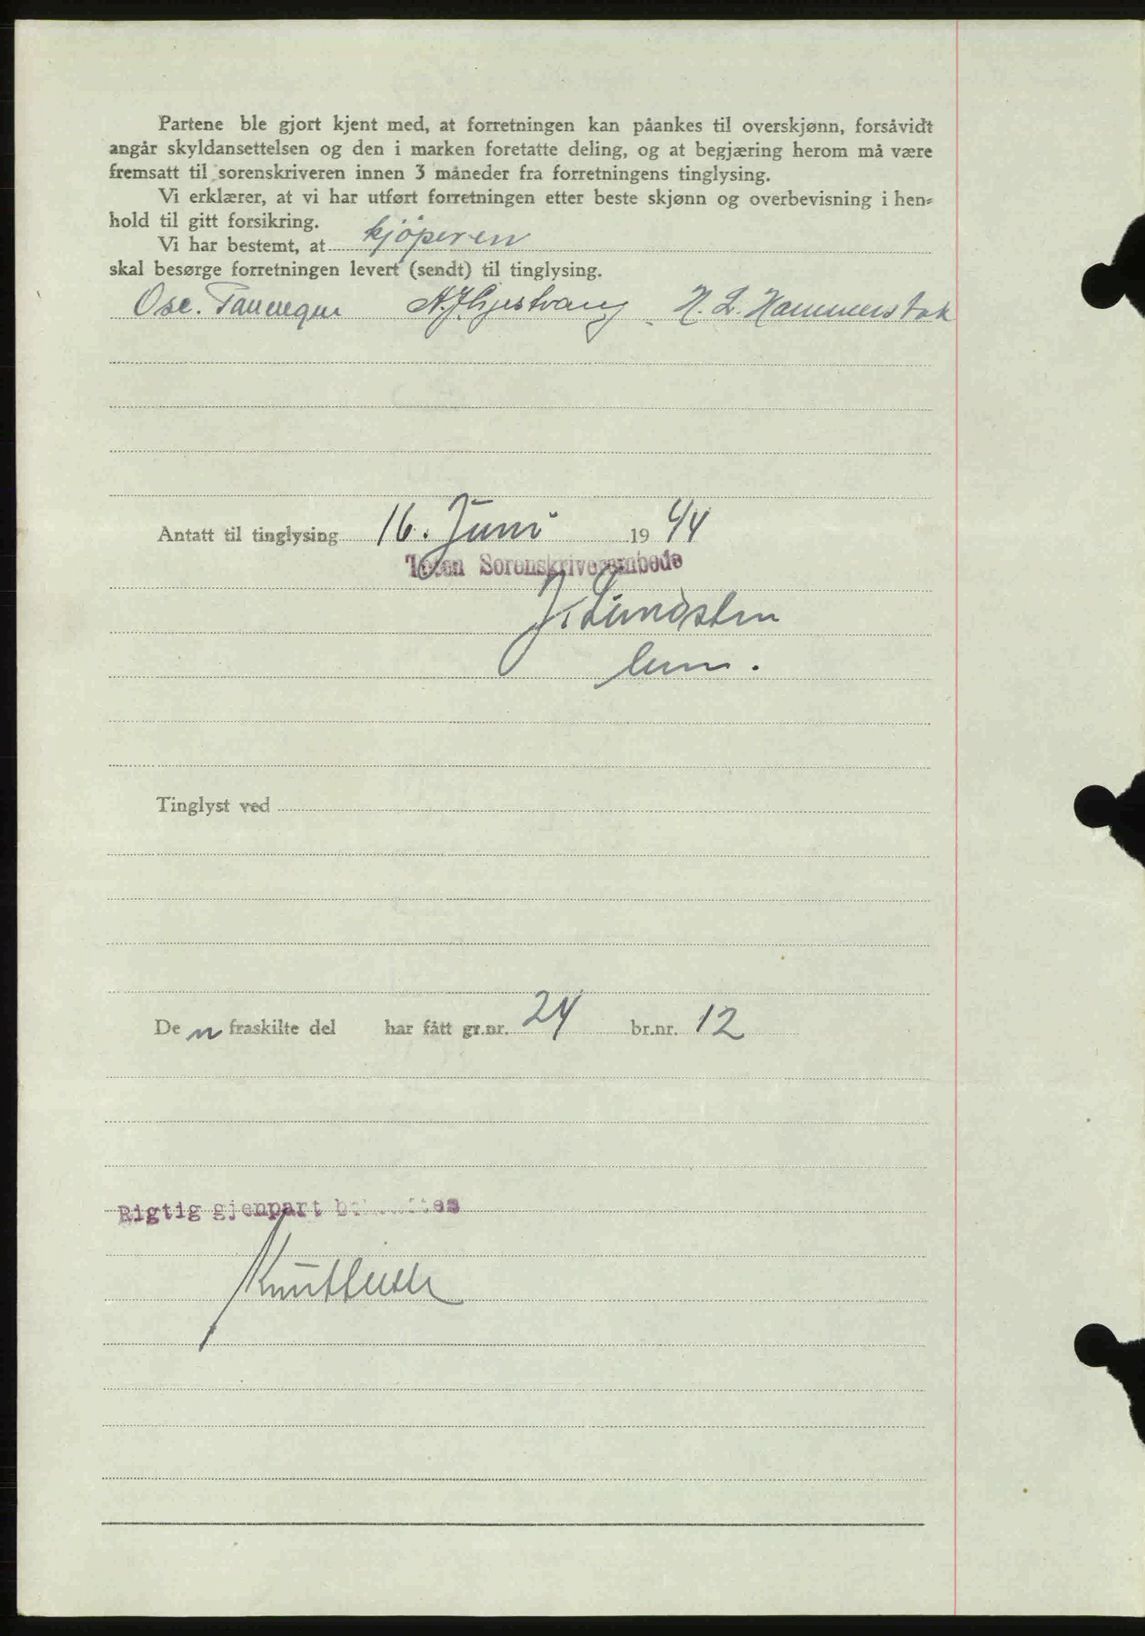 Partene ble gjort kjent med, at forretningen kan påankes til overskjønn, forsåvidt
angår skyldansettelsen og den i marken foretatte deling, og at begjæring herom må være
fremsatt til sorenskriveren innen 3 måneder fra forretningens tinglysing.
Vi erklærer, at vi har utført forretningen etter beste skjønn og overbevisning i hen-
hold til gitt forsikring.
Vi har bestemt, at kjøperen
skal besørge forretningen levert (sendt) til tinglysing.
Osc. H. L. Hammerstak
Antatt til tinglysing 16. Juni 1944
Toten Sorenskriverembede
J. Lundsten
Tinglyst ved
De n fraskilte del har fått gr.nr. 24 br.nr. 12
Rigtig gjenpart bekreftes